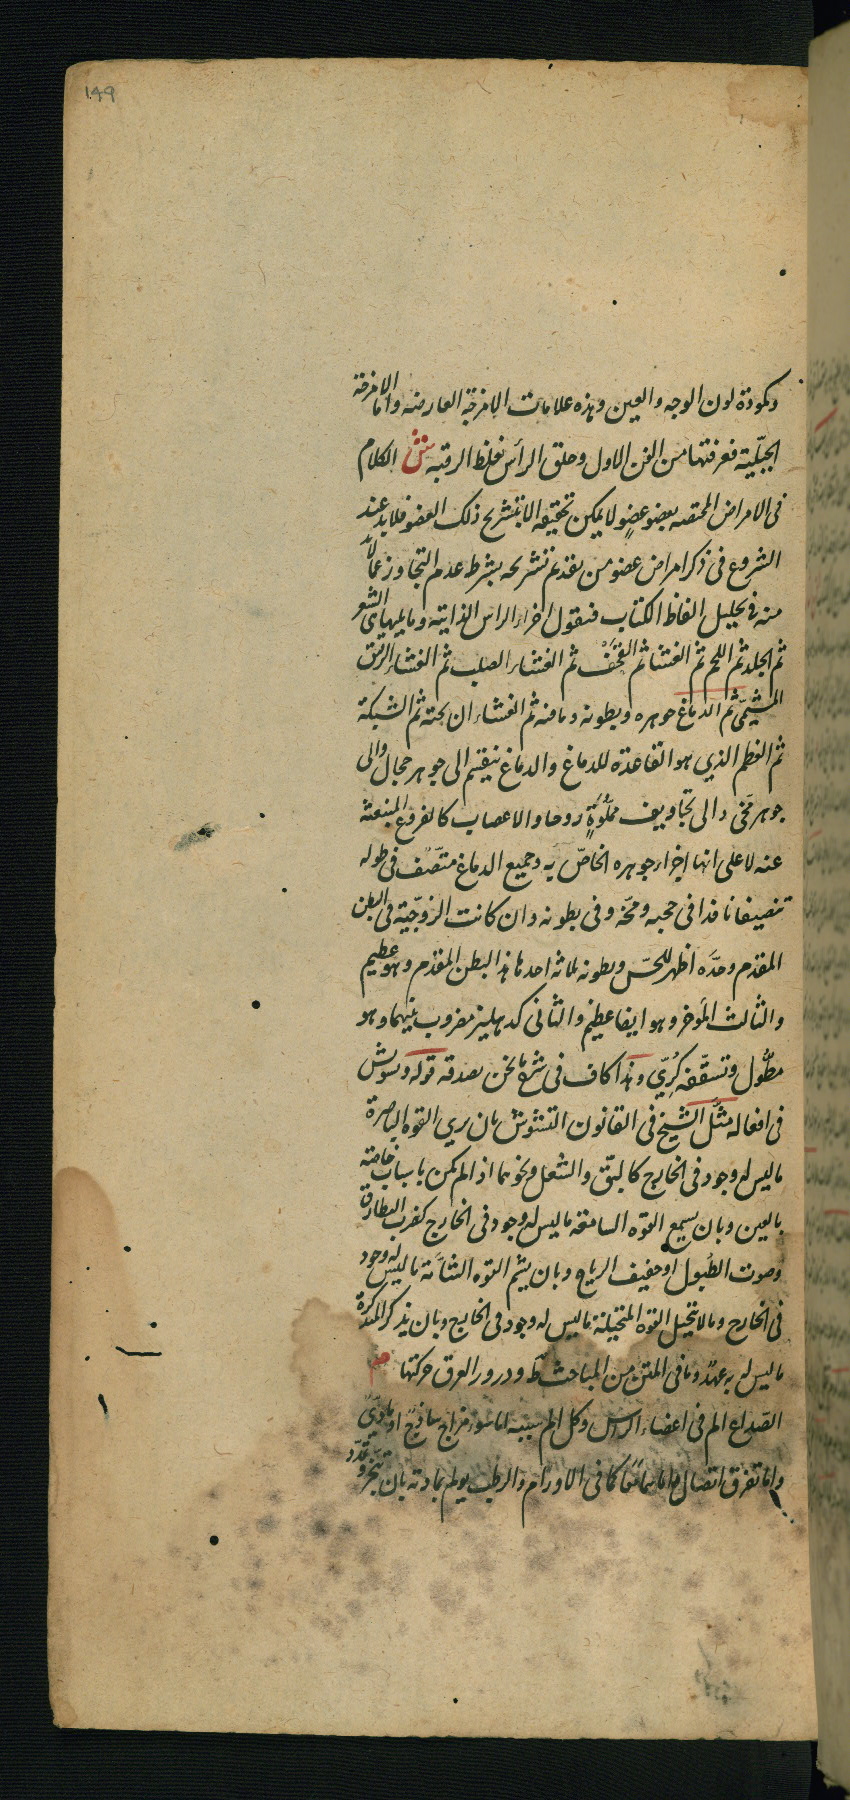 ١٤٩
وكمودة لون الوجه والعين وهذه علامات الامزجة العارضه واما الامزجة
الجبلّيته فعرفتها من الفن الاول وحلق الرأس نغلظ الرقبه ش الكلام
فى الامراض المختصه بعضو عضوٍ لا يمكن تحقيقه الا بتشريح ذلك العضو فلا بد عند
الشروع فى ذكر امراض عضو من تقديم تشريحه بشرط عدم التجاوز عما لابد
منه فى تحليل الفاظ الكتاب فنقول اجزاء الراس الذاتيه وما يليها اى الشعر
ثم الجلد ثم اللحم ثم الغشا ثم القحف ثم الغشاء الصلب ثم الغشاء الرقيق
المشيمّى ثم الدماغ جوهره وبطونه وما فيه ثم الغشاء ان تحته ثم الشبكة
ثم العظم الذي هو القاعدة للدماغ والدماغ ينقسم الى جوهر حجابى والى
جوهر مخى والى تجاويف مملوّةٍ روحا والاعصاب كالفروع المنبعثه
عنه لا على انها اجزاء جوهره الخاصّ به وجميع الدماغ متصّف فى طوله
تنصيفا نافذا فى حجبه ومخّه وفى بطونه وان كانت الزوجّية فى البطن
المقدم وحدّه اظهر للحسّ وبطونه ثلاثه احدها هذا البطن المقدم وهو عظيم
والثالث المؤخر وهو ايضا عظيم والثانى كدهليز مضروب بينهما وهو
مطوّل وتسقّفه كُرِيّ وهذا كاف فى شرح ما نحن بصدده قوله وتشوش
فى افعاله مثّل الشيخ فى القانون التشوش بان يرى القوة الباصرة
ما ليس له وجود فى الخارج كالبقّ والشعل ونحوهما اذا لم يكن باسباب خاصة
بالعين وبان يسمع القوه السامعه ما ليس له وجود فى الخارج كضرب المطارق
وصوت الطبول او حفيف الرياح وبان يشم القوه الشامّة ما ليس له وجود
فى الخارج ومالا يتخيل القوة المتخيلة ما ليس له وجود فى الخارج وبان يذكر المتذكرة
ما ليس له به عهدٌ وما فى المتن من المباحث ط ودرور العرق حركتها م
الصّداع الم فى اعضاء الراس وكل الم سببه اما سوء مزاج ساذج او مادّىّ
واما تفرق اتصال واما هما معًا كما فى الاورام والرطب يولم بمادته بان يتبخر ويمدّد